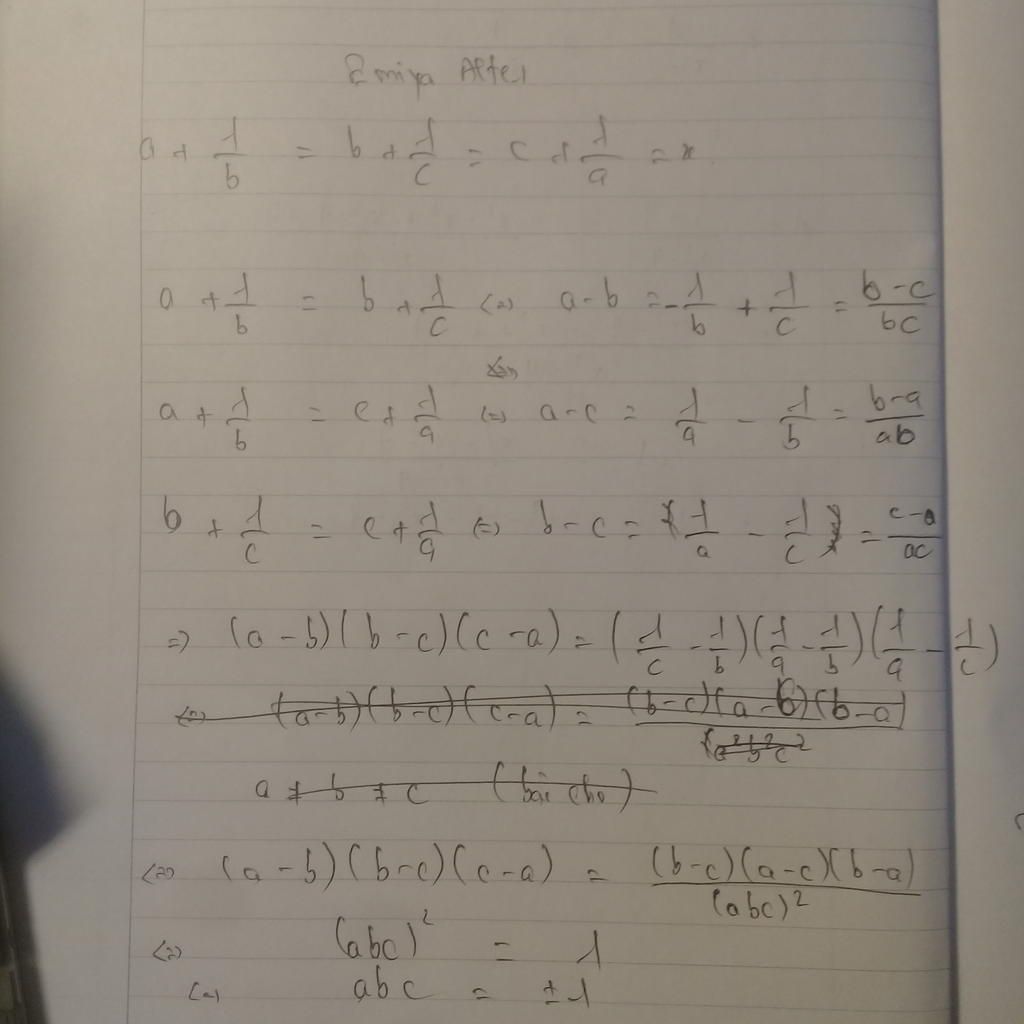 Emiya After
a + 1/b = b + 1/c = c + 1/a = x
a + 1/b = b + 1/c <=> a - b = -1/b + 1/c = (b-c)/bc
a + 1/b = c + 1/a <=> a - c = 1/a - 1/b = (b-a)/ab
b + 1/c = c + 1/a <=> b - c = (1/a - 1/c) = (c-a)/ac
=> (a-b)(b-c)(c-a) = (1/c - 1/b)(1/a - 1/b)(1/a - 1/c)
<=> (a-b)(b-c)(c-a) = (b-c)(a-c)(b-a)/(a²b²c²
a ≠ b ≠ c (bài cho)
<=> (a-b)(b-c)(c-a) = (b-c)(a-c)(b-a)/(abc)²
<=> (abc)² = 1
<=> abc = ±1